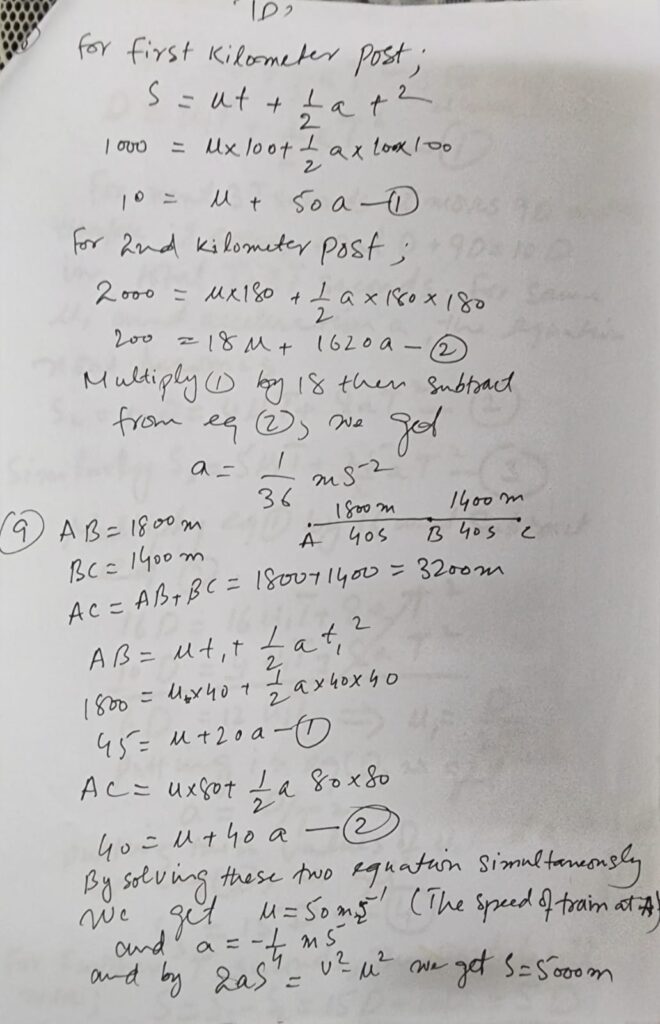 for first kilometer post;
S = ut + 1/2 a t²
1000 = u×100 + 1/2 a×100×100
10 = u + 50a —①
for 2nd kilometer post;
2000 = u×180 + 1/2 a×180×180
200 = 18u + 1620a —②
Multiply ① by 18 then subtract
from eq ②, we got
a = 1/36 ms⁻²
1800m 1400m
⑨ AB = 1800m
A 40s B 40s C
BC = 1400m
AC = AB + BC = 1800+1400 = 3200m
AB = ut₁ + 1/2 at₁²
1800 = u×40 + 1/2 a×40×40
45 = u + 20a —①
AC = u×80 + 1/2 a 80×80
40 = u + 40a —②
By solving these two equation simultaneously
we get u = 50ms⁻¹ (The speed of train at A)
and a = -1/4 ms
and by 2aS = v² - u² we get S = 5000m